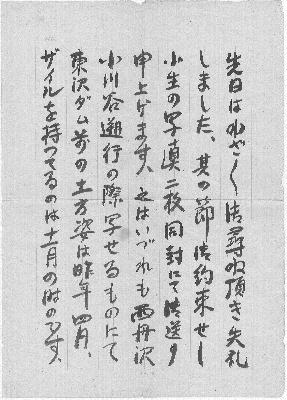 先日はわざ〱御尋ね頂き失礼
しました、其の節御約束せし
小生の写真二枚同封にて御送り
申上げます、之はいづれも西丹沢
小川谷遡行の際写せるものにて
東沢ダム前の土方姿は昨年四月、
ザイルを持つてるのは十一月の時のです、